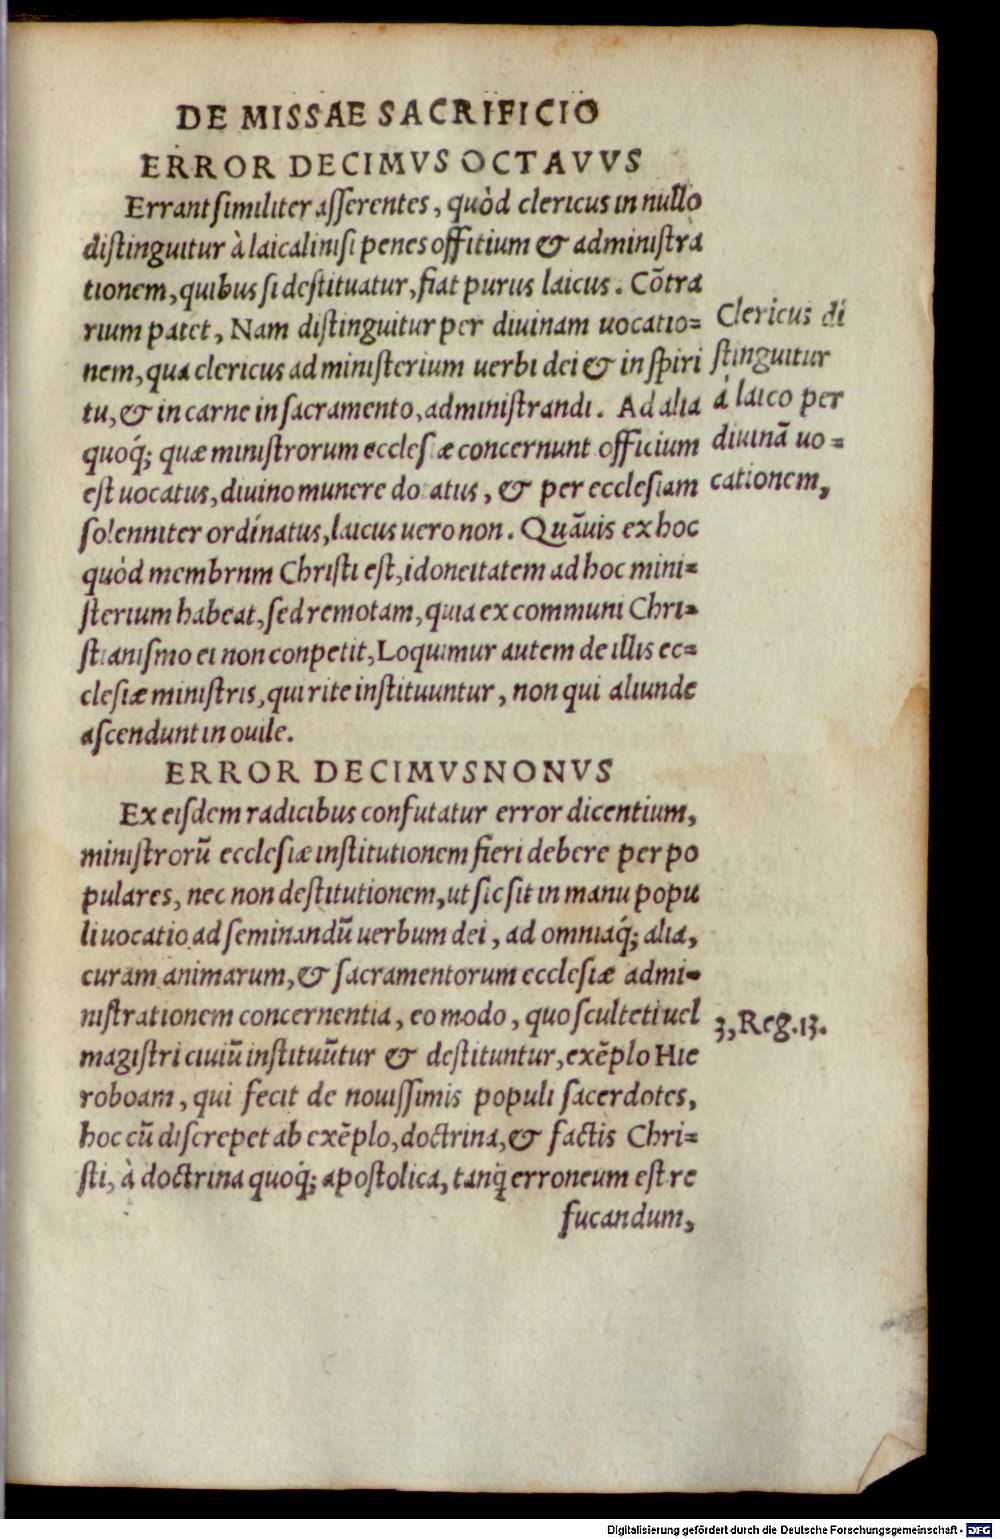 DE MISSAE SACRIFICIO
ERROR DECIMVS OCTAVVS
Errant ſimiliter aſſerentes, quòd clericus in nullo
diſtinguitur à laicali niſi penes offitium & adminiſtra
tionem, quibus ſi deſtituatur, fiat purus laicus. Cõtra
rium patet, Nam diſtinguitur per diuinam uocatio=
nem, qua clericus ad miniſterium uerbi dei & in ſpiri
tu, & in carne in ſacramento, adminiſtrandi. Ad alia
quoq́; quæ miniſtrorum eccleſiæ concernunt officium
eſt uocatus, diuino munere do atus, & per eccleſiam
ſolenniter ordinatus, laicus uero non. Quãuis ex hoc
quòd membrnm Chriſti eſt, idoneitatem ad hoc mini=
ſterium habeat, ſed remotam, quia ex communi Chri=
ſtianiſmo ei non conpetit, Loquimur autem de illis ec=
cleſiæ miniſtris, qui rite inſtituuntur, non qui aliunde
aſcendunt in ouile.
Clericus di
ſtinguitur
à laico per
diuinã uo=
cationem,
ERROR DECIMVSNONVS
Ex eiſdem radicibus confutatur error dicentium,
miniſtrorũ eccleſiæ inſtitutionem fieri debere per po
pulares, nec non deſtitutionem, ut ſic ſit in manu popu
li uocatio ad ſeminandũ uerbum dei, ad omniaq́; alia,
curam animarum, & ſacramentorum eccleſiæ admi=
niſtrationem concernentia, eo modo, quo ſculteti uel
magiſtri ciuiũ inſtituũtur & deſtituntur, exẽplo Hie
roboam, qui fecit de nouiſſimis populi ſacerdotes,
hoc cũ diſcrepet ab exẽplo, doctrina, & factis Chri=
ſti, à doctrina quoq́; apoſtolica, tanq̃ erroneum eſt re
fucandum,
3, Reg. 13.
Digitalisierung gefördert durch die Deutsche Forschungsgemeinschaft - DFG